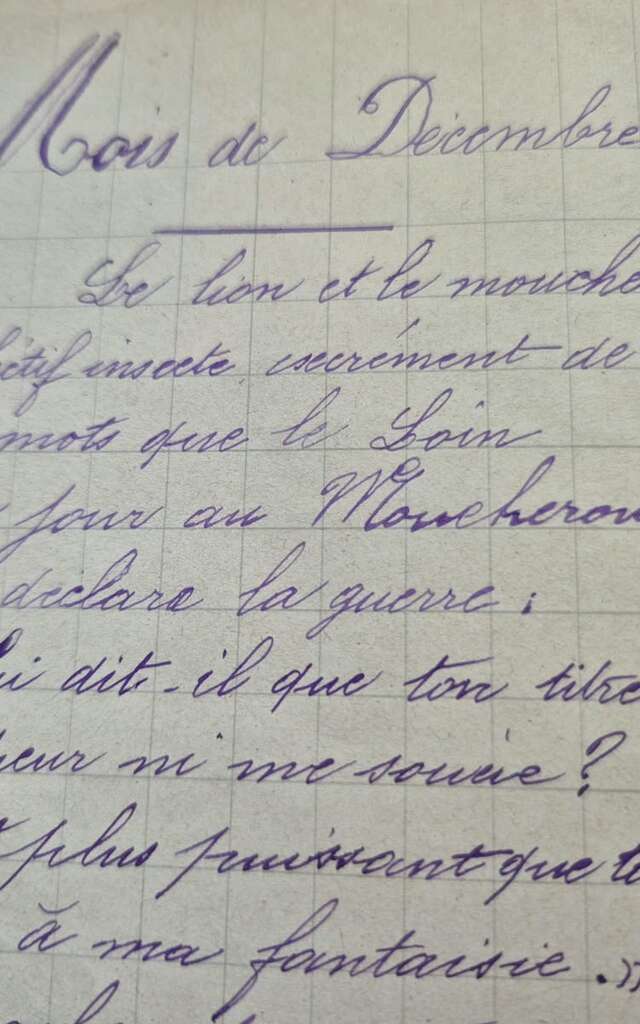 Mois de Décembre
Le lion et le mouche
étif insecte excrément de
mots que le Loin
jour au Moucheron
déclara la guerre :
i dit-il que ton titre
eur ni me soucie ?
plus puissant que
à ma fantaisie. »